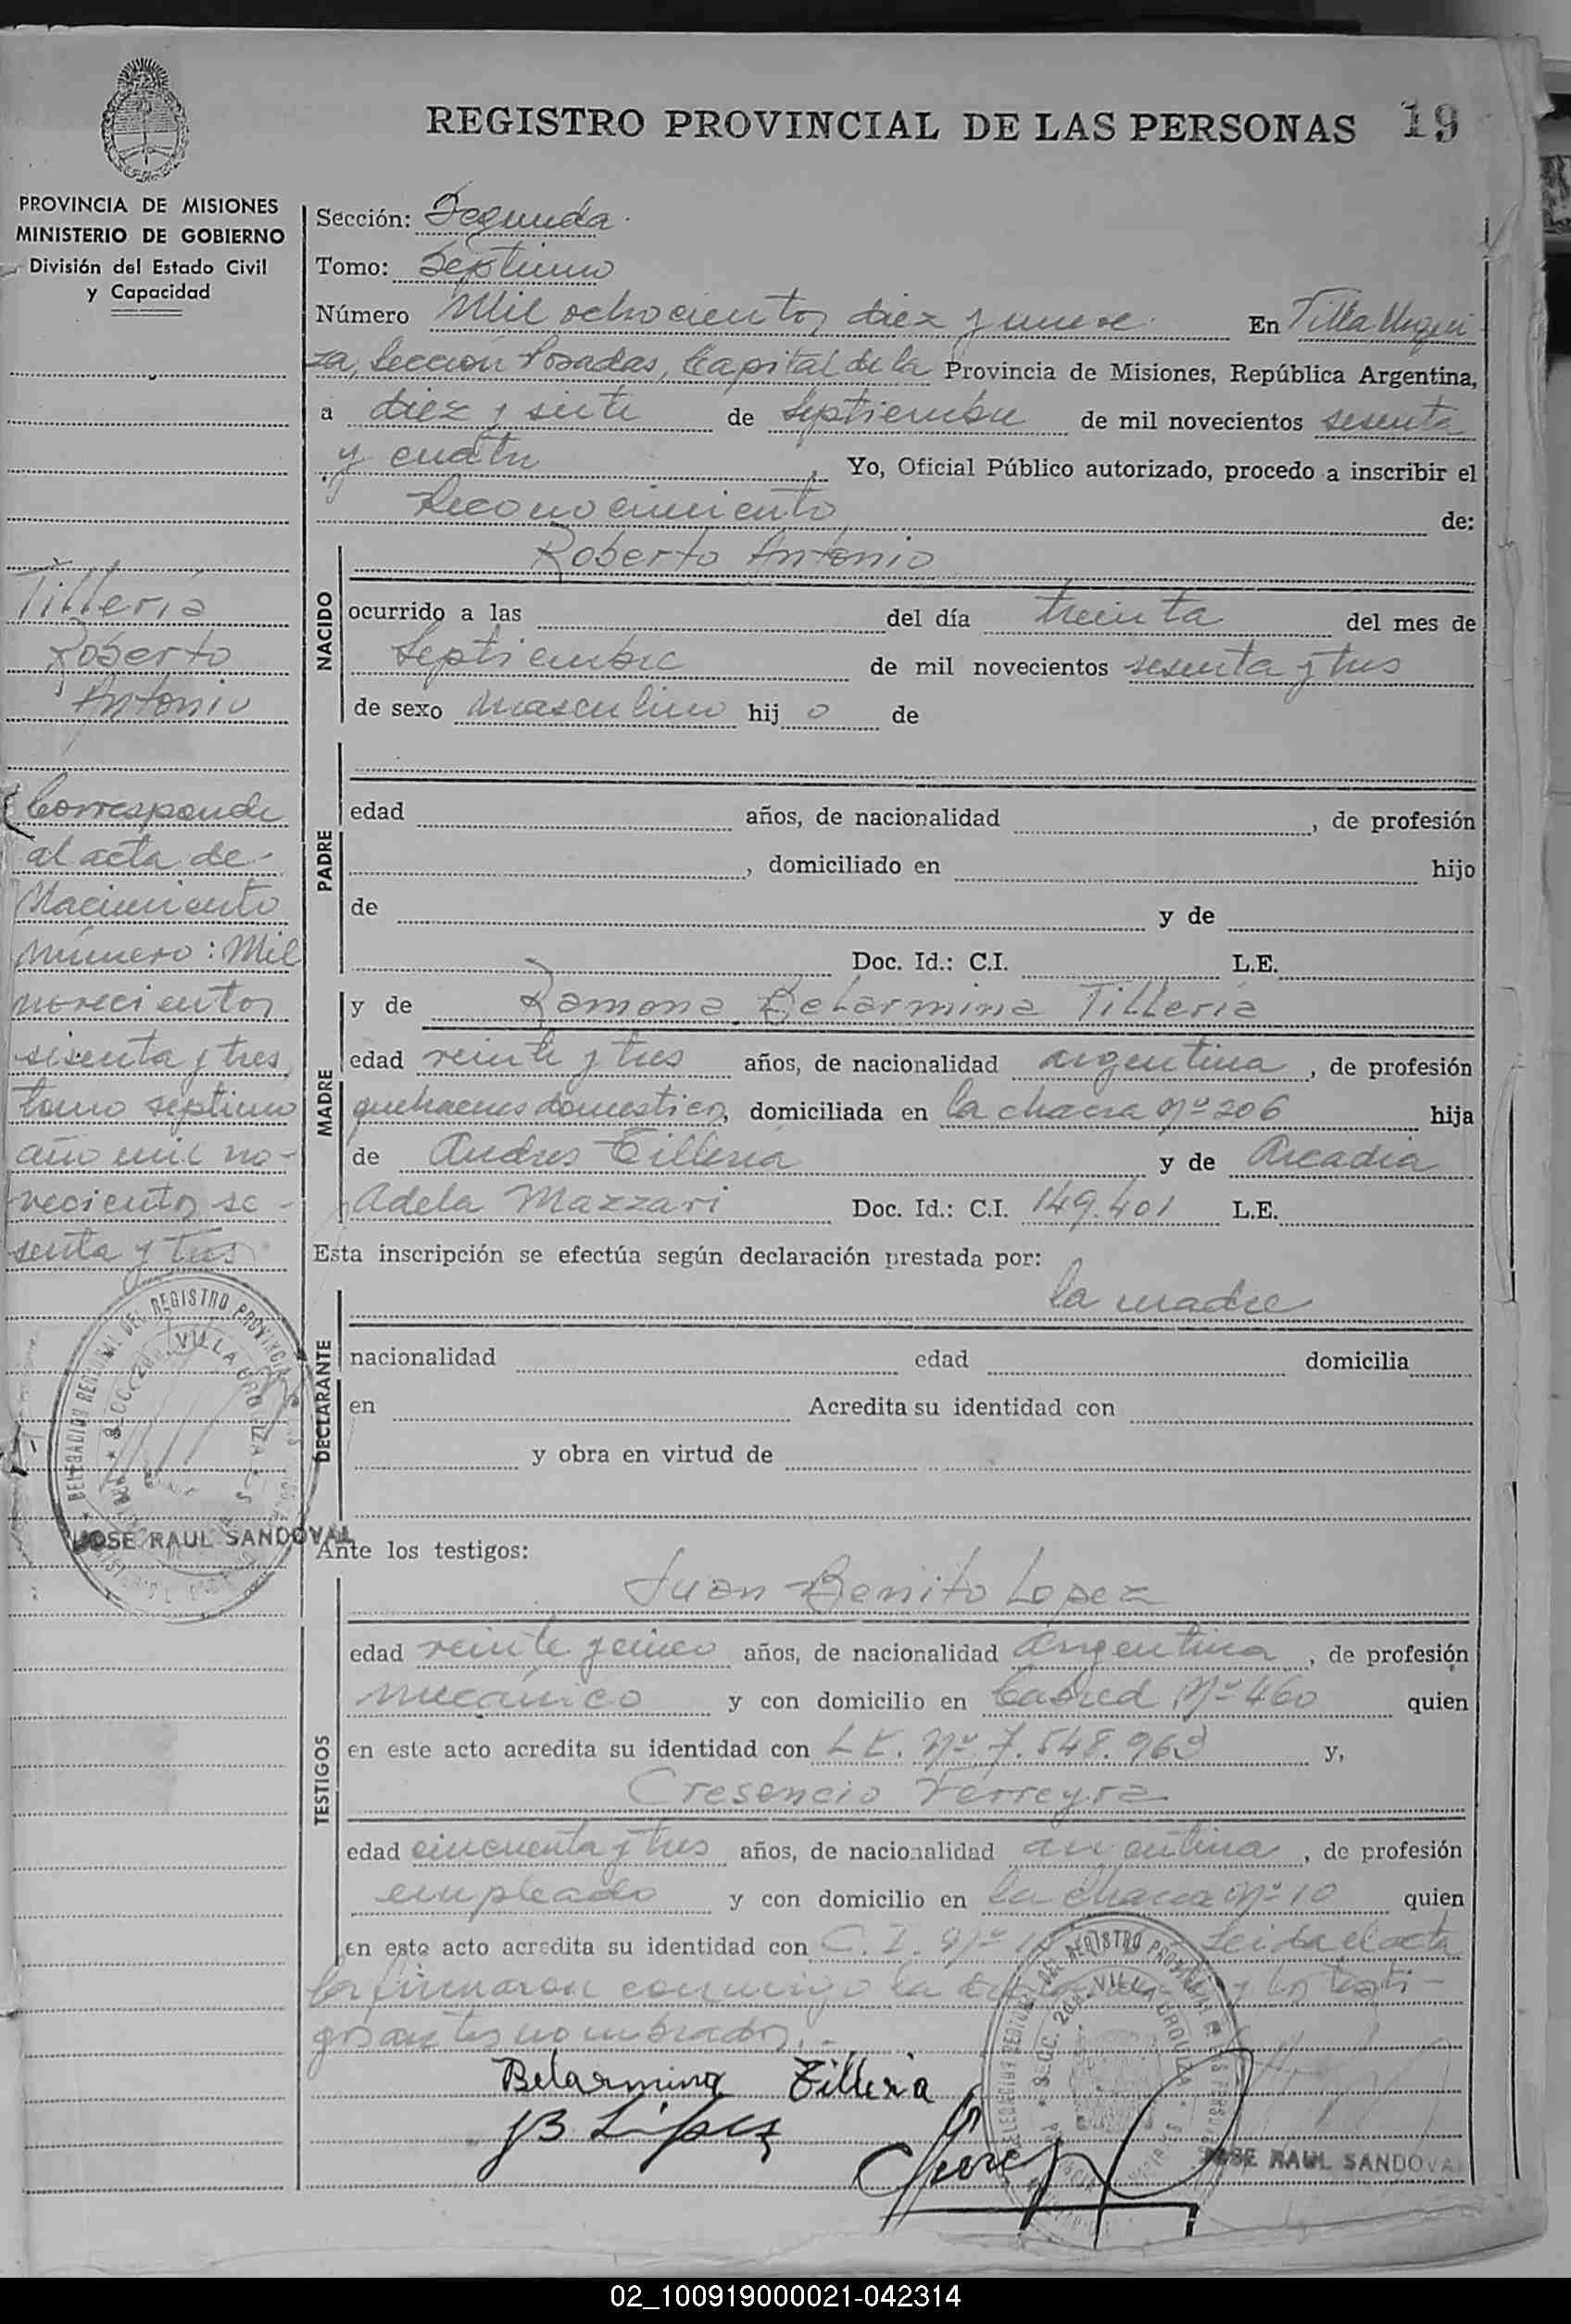 REGISTRO PROVINCIAL DE LAS PERSONAS 19
PROVINCIA DE MISIONES
MINISTERIO DE GOBIERNO
División del Estado Civil
y Capacidad
Sección: Segunda
Tomo: Septimo
Número Mil ochocientos diez y nueve En Villa Urqui
za, Sección Posadas, Capital de la Provincia de Misiones, República Argentina,
a diez y siete de Septiembre de mil novecientos sesenta
y cuatro, Yo, Oficial Público autorizado, procedo a inscribir el
Reconocimiento de:
NACIDO
Roberto Antonio
ocurrido a las del día treinta del mes de
Septiembre de mil novecientos sesenta y tres
de sexo masculino hij o de
Tillería
Roberto
Antonio
Corresponde
al acta de
Nacimiento
número: Mil
novecientos
sesenta y tres,
tomo septimo
año mil no-
vecientos se-
senta y tres
PADRE
edad años, de nacionalidad , de profesión
, domiciliado en hijo
de y de
Doc. Id.: C.I. L.E.
MADRE
y de Ramona Belarmina Tillería
edad veinte y tres años, de nacionalidad argentina, de profesión
quehaceres domesticos, domiciliada en la chacra Nº 206 hija
de Andres Tilleria y de Arcadia
Adela Mazzari Doc. Id.: C.I. 149.401 L.E.
Esta inscripción se efectúa según declaración prestada por:
DECLARANTE
la madre
nacionalidad edad domicilia
en Acredita su identidad con
y obra en virtud de
DELEGACION REGIONAL DEL REGISTRO PROVINCIAL
SECC. 2da. VILLA URQUIZA
JOSE RAUL SANDOVAL
Ante los testigos:
TESTIGOS
Juan Benito Lopez
edad veinte y cinco años, de nacionalidad Argentina, de profesión
mecánico y con domicilio en Nº 460 quien
en este acto acredita su identidad con L.E. Nº 7.548.963 y,
Cresencio Ferreyra
edad cincuenta y tres años, de nacionalidad argentina, de profesión
empleado y con domicilio en la chacra Nº 10 quien
en este acto acredita su identidad con C. I. Nº Leida el acta
la firmaron conmigo la y los testi-
gos antes nombrados.-
Belarmina Tilleria
JB López
DELEGACION REGIONAL DEL REGISTRO PROVINCIAL DE LAS PERSONAS
SECC. 2da. VILLA URQUIZA
JOSE RAUL SANDOVAL
02_100919000021-042314